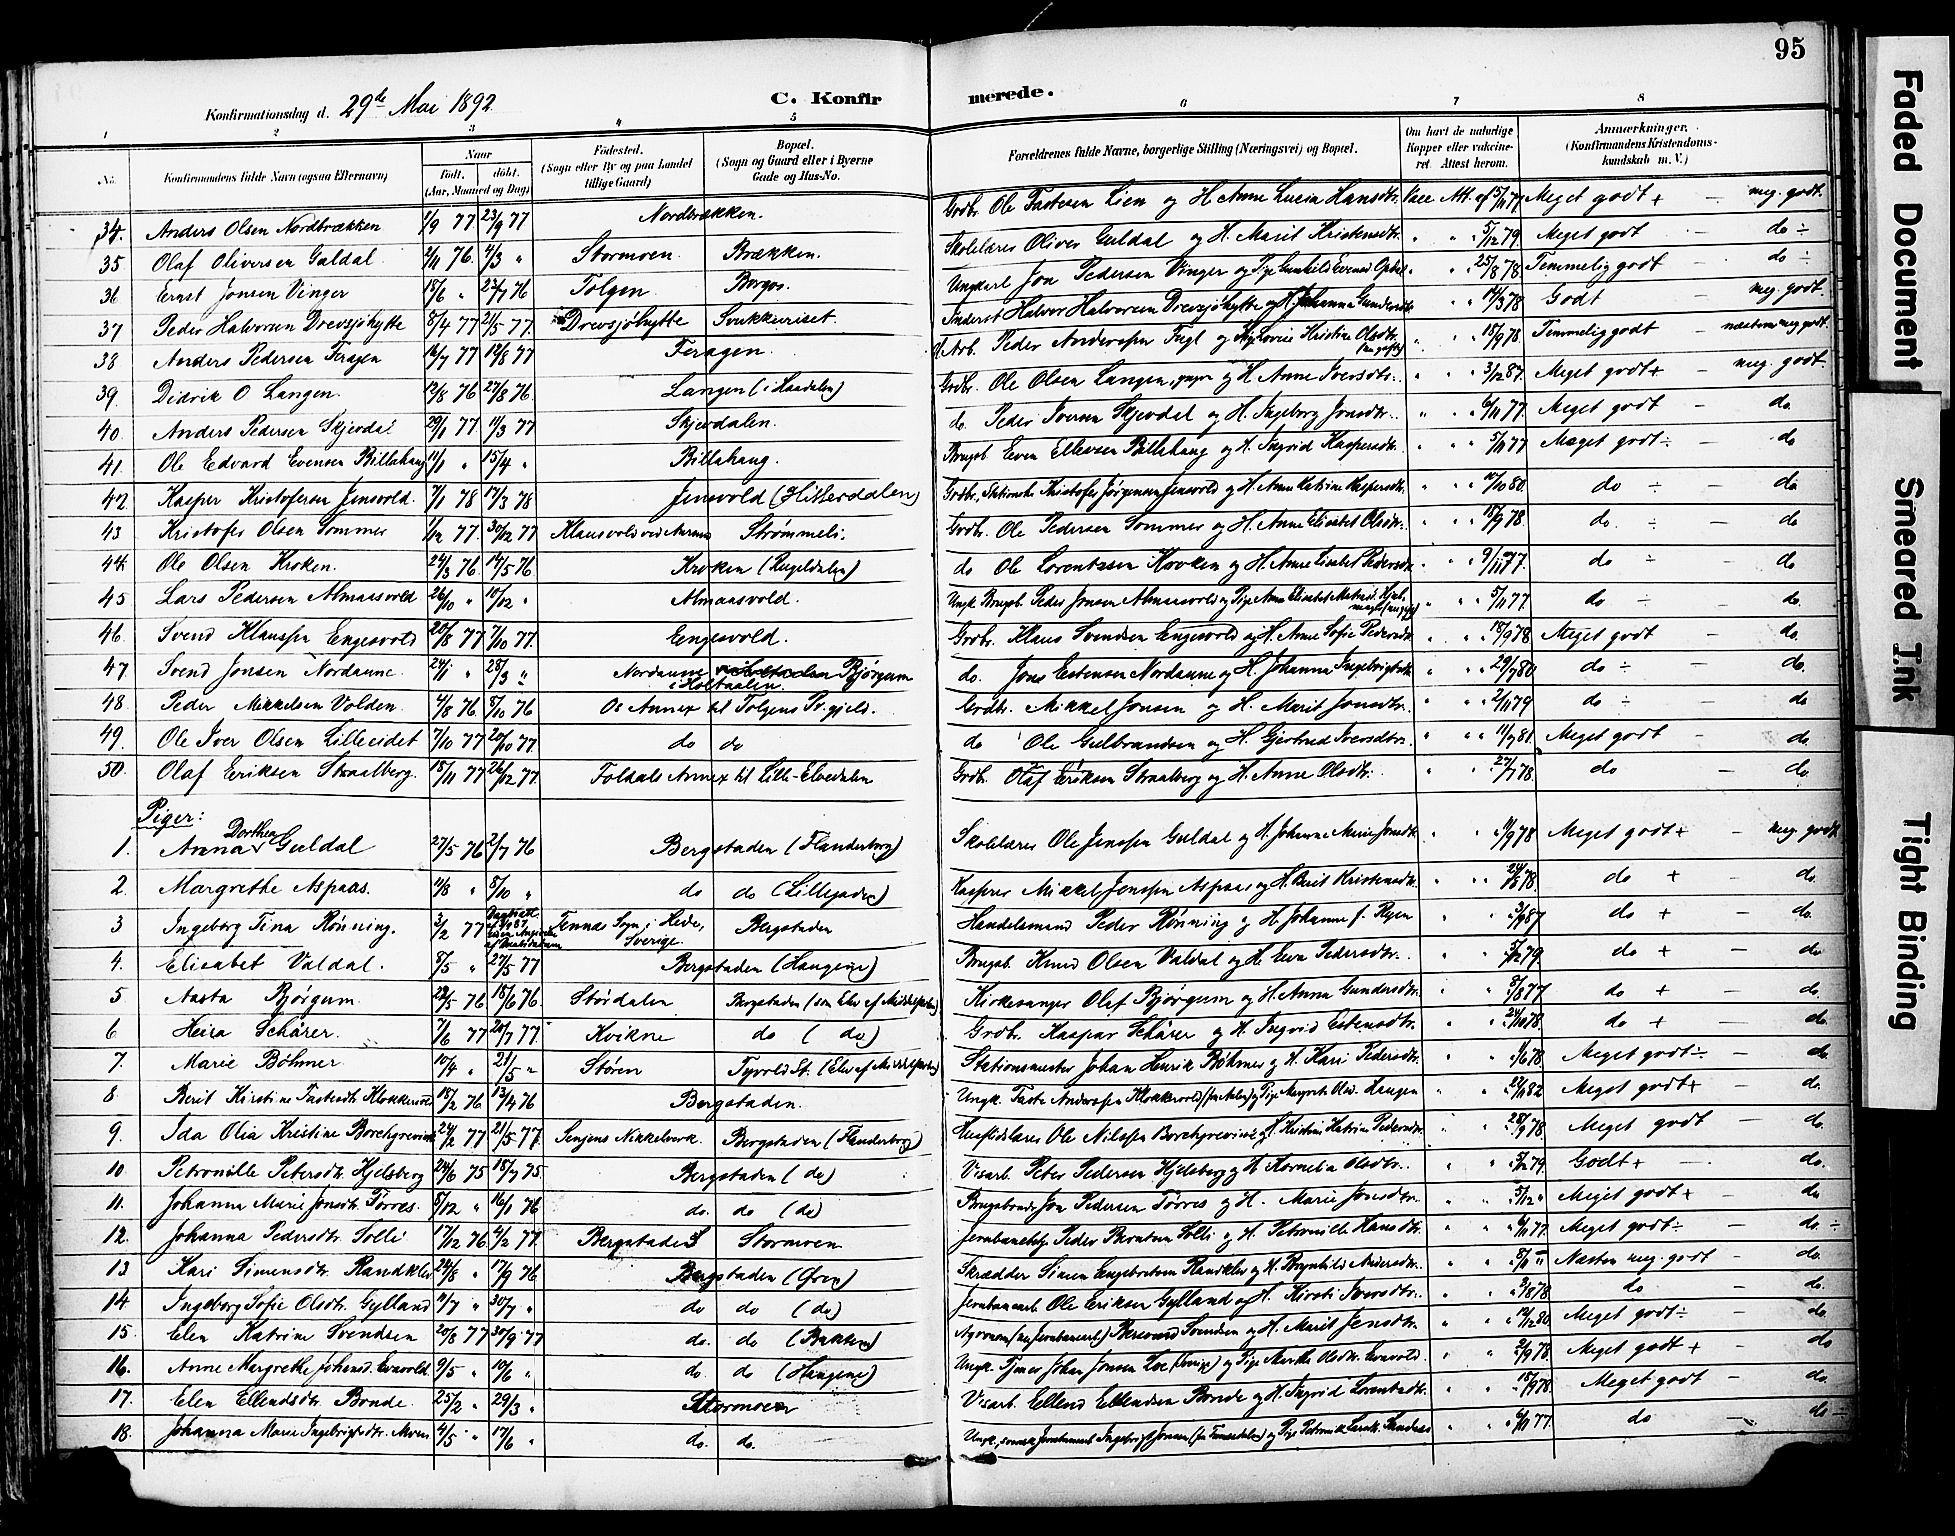 95
Konfirmationsdag d. 29de Mai 1892
C. Konfirmerede.
1 2 3 4 5 6 7 8
No. Konfirmandens fulde Navn (ogsaa Efternavn) Naar Født. døbt. (Aar, Maaned og Dag) Fødested. (Sogn eller By og paa Landet tillige Gaard) Bopæl. (Sogn og Gaard eller i Byerne Gade og Hus-No. Forældrenes fulde Navne, borgerlige Stilling (Næringsvei) og Bopæl. Om havt de naturlige Kopper eller vakcineret. Attest herom. Anmærkninger. (Konfirmandens Kristendomskundskab m. V.)
34. Anders Olsen Nordbrækken 1/9 77 23/9 77 Nordbrækken. Grdbr. Ole Tastesen Lien og H. Anne Lucia Hansdtr. Vacc. Att. af 15/11 77 Meget godt + — meg. godt.
35 Olaf Oliversen Guldal 2/11 76. 4/3 " Stormoen Brækken. Skolelærer Oliver Guldal og H. Marit Kristensdtr. " " 5/12 79. Meget godt — do ÷
36 Ernst Jonsen Vinger 18/6 " 23/7 76 Tolgen Borgos. Ungkarl Jon Pedersen Vinger og Pige Gunhild Evensd. " " 25/8 78 Temmelig godt — do ÷
37 Peder Halvorsen Drevsjøhytte 8/4 77 21/5 77. Drevsjøhytte Svukkuriset. Halvor Halvorsen Drevsjøhytte og H. Johanna Gundersdtr " " 14/3 78 Godt — meg. godt.
38 Anders Pedersen Feragen 16/7 77 19/8 77 Feragen. Peder Anderssen Fugl og Lovise Kristine Olsdtr. " " 18/9 78. Temmelig godt — næsten meg godt.
39. Didrik O Langen. 12/8 76 27/8 76. Langen (i Haadalen) Grdbr. Ole Olsen Langen, og H. Anne Iversdtr. " " 3/12 87. Meget godt + — meg. godt.
40. Anders Pedersen Skjevdal 29/1 77 11/3 77 Skjevdalen. do. Peder Iversen Skjevdal og H. Ingeborg Jonsdtr. " " 6/11 77. Meget godt — do.
41. Ole Edvard Evensen Billahaug 11/1 " 15/4 " Billahaug. Brugsb. Even Ellevsen Billahaug og H. Ingrid Kaspersdtr. " " 5/11 77 Meget godt ÷ do
42 Kasper Kristofersen Jensvold. 7/1 78 17/3 78 Jensvold (Hitterdalen) Grdbr., Kristofer Jørgensen Jensvold og H. Anne Katrine Kaspersdtr. " " 10/10 80. do ÷ — do
43 Kristofer Olsen Sommer 1/12 77. 30/12 77 Klausvold ved Aursund Strømmeli. Grdbr. Ole Pedersen Sommer og H. Anne Elisabet Olsdtr. " " 18/9 78. do. ÷ — do
44. Ole Olsen Kroken. 24/3 76. 14/5 76 Kroken (Rugeldalen) do Ole Lorentssen Kroken og H. Anne Lisabet Pedersdtr " " 9/11 77. do ÷ do
45 Lars Pedersen Almaasvold 26/10 " 10/12 " Almaasvold. Ungk. Brugsb. Peder Jonsen Almaasvold og Pige Anne Elisabet " " 5/11 77. do ÷ do.
46. Svend Klaussen Engesvold 20/8 77 7/10 77. Engesvold. Grdbr. Klaus Svendsen Engesvold og H. Anne Sofie Pedersdtr " " 18/9 78 Meget godt — do.
47 Svend Jonsen Nordaune 24/1 " 28/3 " Nordaune i Holtaalen. Bjørgum do. Jens Estensen Nordaune og H. Johanna Ingebrigtsdtr " " 29/7 80 do ÷ — do.
48 Peder Mikkelsen Volden. 4/8 76. 8/10 76 Os Annex til Tolgens Prgjeld. Grdbr. Mikkel Jonsen og H. Marit Jonsdtr. " " 2/11 79 do ÷ do
49. Ole Iver Olsen Lilleeidet 7/10 77 20/10 77. do do do Ole Gulbrandsen og H. Gjertrud Iversdtr. " " 11/7 81. Meget godt — do
50. Olaf Eriksen Straalberg. 18/11 77 26/12 77. Foldals Annex til Lille-Elvedalen Grdb. Olaf Eriksen Straalberg og H. Anne Olsdtr. " 27/7 78. do — do.
Piger:
1. Anna Dorthea Guldal 27/5 76 2/7 76 Bergstaden (Flanderborg) Skolelærer Ole Jenssen Guldal og H. Johanne Marie Jonsdtr " " 11/9 78 Meget godt + — meg. godt
2. Margrethe Aspaas. 11/8 " 8/10 " do do (Lillegaden) Kasserer Mikkel Jenssen Aspaas og H. Berit Kristensdtr. " " 78. do + — do.
3 Ingeborg Tina Rønning. 3/2 77 Tennæs Sogn i Hede, Sverige. Bergstaden Handelsmand Peder Rønning og H. Johanne f. Ryen " " 3/9 87 do + — do.
4. Elisabet Valdal. 8/5 " 27/5 77 Bergstaden (Haugene) Brugsb. Knud Olsen Valdal og H. Eva Pedersdtr. " 79 do + — do.
5 Aasta Bjørgum 28/5 76 18/6 76. Størdalen Bergstaden (som Elev af Middelskolen) Kirkesanger Olaf Bjørgum og H. Anna Gundersdtr. " 8/8 77 do + do.
6 Heira Schärer. 7/6 77 20/7 77. Kvikne do (do) Grdbr. Kaspar Schärer og H. Ingrid Estensdtr. " " 24/10 78. do + — do.
7. Marie Bøhmer. 10/4 " 21/5 " Støren Tyvold St. (Elev af Middelskolen) Stationsmester Johan Henrik Bøhmer og H. Kari Pedersdtr. " " 1/6 78 Meget godt ÷ — do.
8 Berit Kirstine Tastesdt. Klokkervold 18/2 76 13/4 76 Bergstaden. Ungk. Taste Anderssen Klokkervold (fra Aalen) og Pige Margrete Olsd. Haugen " " 21/1 82 Meget godt + do.
9. Ida Olia Kristine Borchgrevink 24/2 77 21/5 77. Senjens Nikkelverk. Bergstaden (Flanderborg) Husflidslærer Ole Nilssen Borchgrevink og H. Kristine Katrine Pedersdtr. " " 28/9 78 Meget godt — do.
10 Petronille Petersdt. Hjelsberg 24/6 75 18/7 75. Bergstaden (do) Visarb. Peter Pedersen Hjelsberg og H. Kornelia Olsdtr. " " 79. Godt + — do.
11. Johanna Marie Jonsdt. Tørres. 8/12 " 16/1 76 do. do (do) Jon Pedersen Tørres og H. Marie Jonsdtr. " " 5/12 " Meget godt + do
12. Johanna Pedersdtr. Solli 17/12 76 4/2 77. Bergstaden Stormoen Peder Berntsen Solli og H. Petronille Hansdtr. " " 6/11 77. Meget godt ÷ — do. ÷
13 Kari Simensdt. Randklev 24/8 " 17/9 76 Bergstaden (Øra) Skrædder Simen Engebretsen Randklev og H. Brynhild Andersdtr. " " Næsten meg. godt — do.
14 Ingeborg Sofie Olsdtr. Gylland 11/7 " 30/7 " do do (do) Jernbanearb. Ole Eriksen Gylland og H. Kirsti Iversdtr. " " 2/8 78 do — do.
15. Elen Katrine Svendsen 20/8 77 30/9 77 do. do (Bakken) Svendsen og H. Marit Jensdtr. " " 12/12 80 Meget godt ÷ — do.
16. Anne Margrethe Johansd. Evavold. 9/5 " 10/6 " do. do (Haugene) Ungk. Johan Jonsen Loe og Pige Marthe Olsdtr. Evavold. " " 2/9 78. Meget godt + — do
17. Elen Ellendsdtr Bonde. 25/2 " 29/3 " Stormoen Visarb. Ellend Ellendsen Bonde og H. Ingrid Lorentsdtr. " " 18/9 78. Meget godt — do.
18. Johanna Marie Ingebrigtsdtr. Moen 4/5 " 17/6 " do. do. Ungk. Ingebrigt Jonsen og Pige " " 6/11 77. do — do ÷
Faded Document
Smeared Ink
Tight Binding